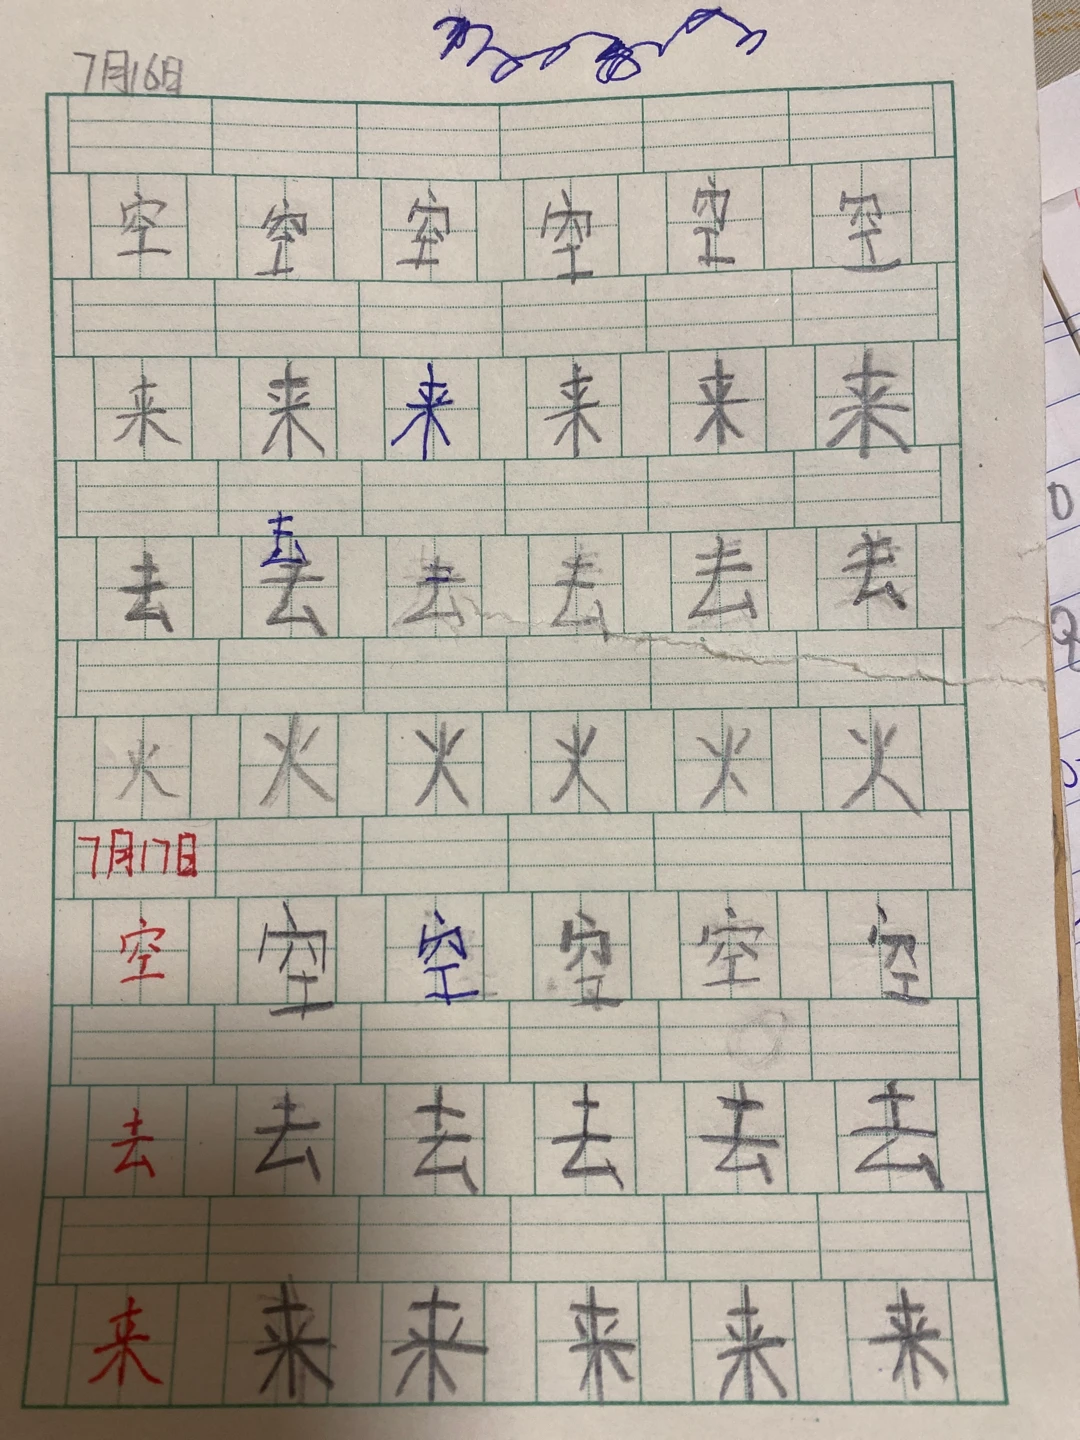 7月16日
空 空 空 空 空 空
来 来 来 来 来 来
去
去 去 去 去 去 去
火 火 火 火 火 火
7月17日
空 空 空 空 空 空
去 去 去 去 去 去
来 来 来 来 来 来